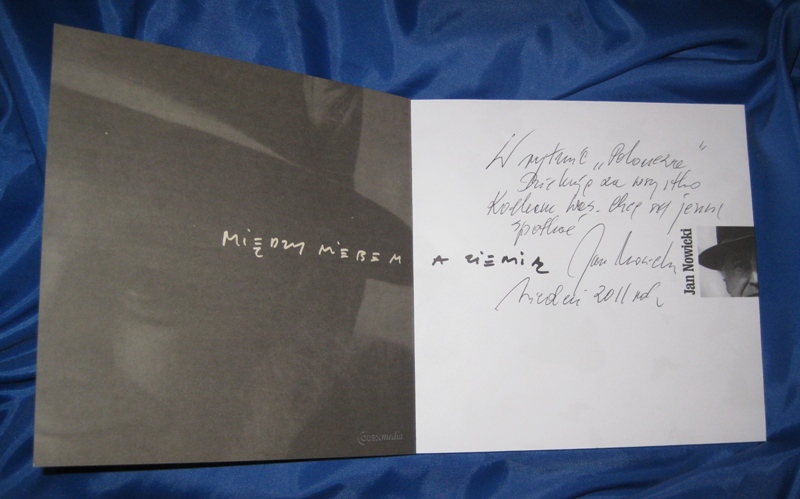 MIĘDZY NIEBEM A ZIEMIĄ
W rytmie „Poloneza"
Dziękuję za wszystko
Kocham Was. Chcę się jeszcze
spotkać
Jan Nowicki
Wiedeń 2011 rok
Jan Nowicki